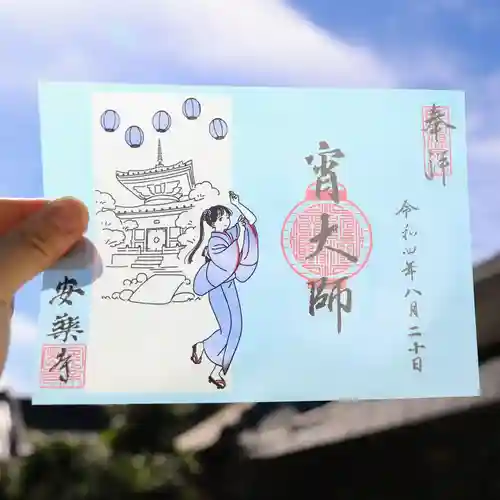 奉拝
宵大師
令和四年八月二十日
安楽寺